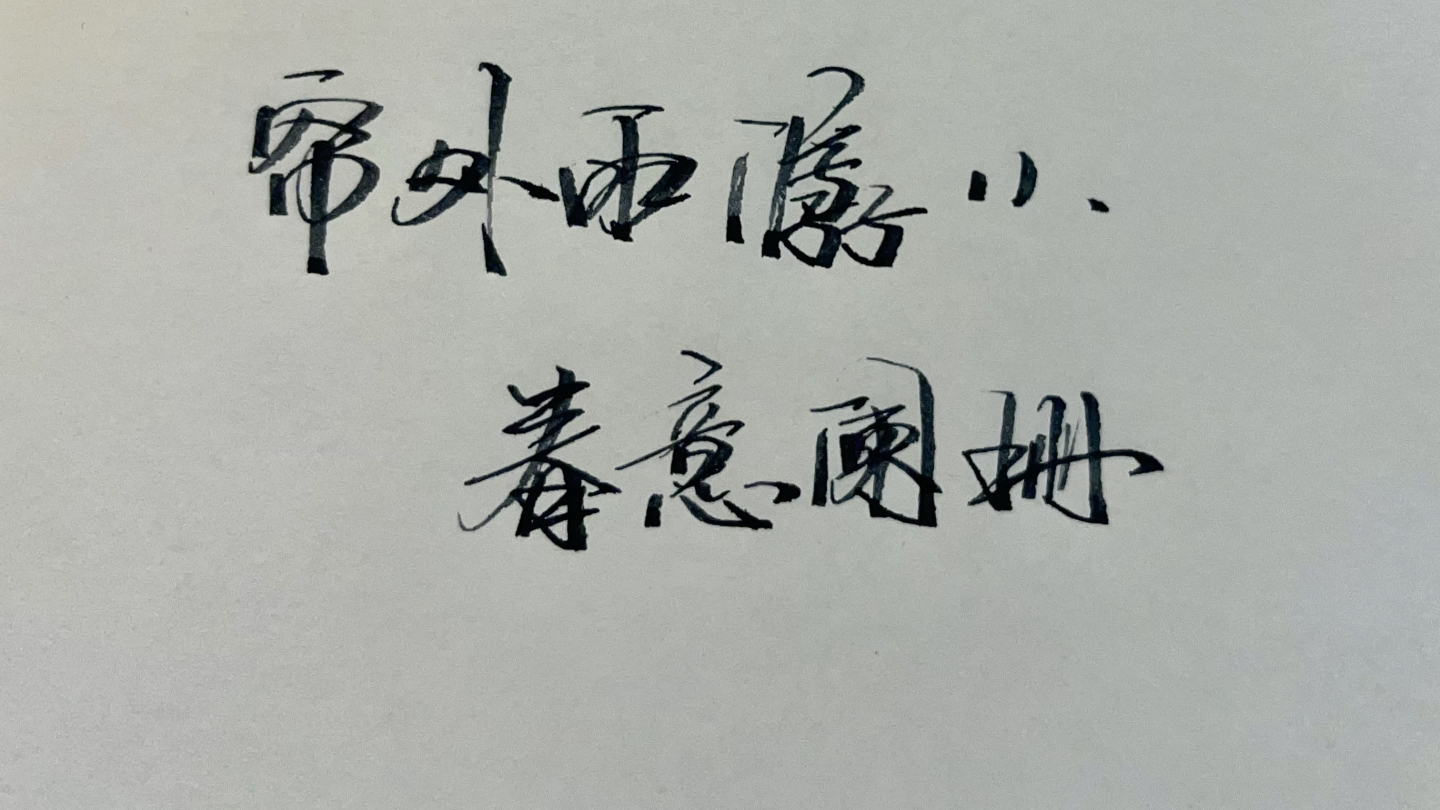 帘外雨潺潺
春意阑珊